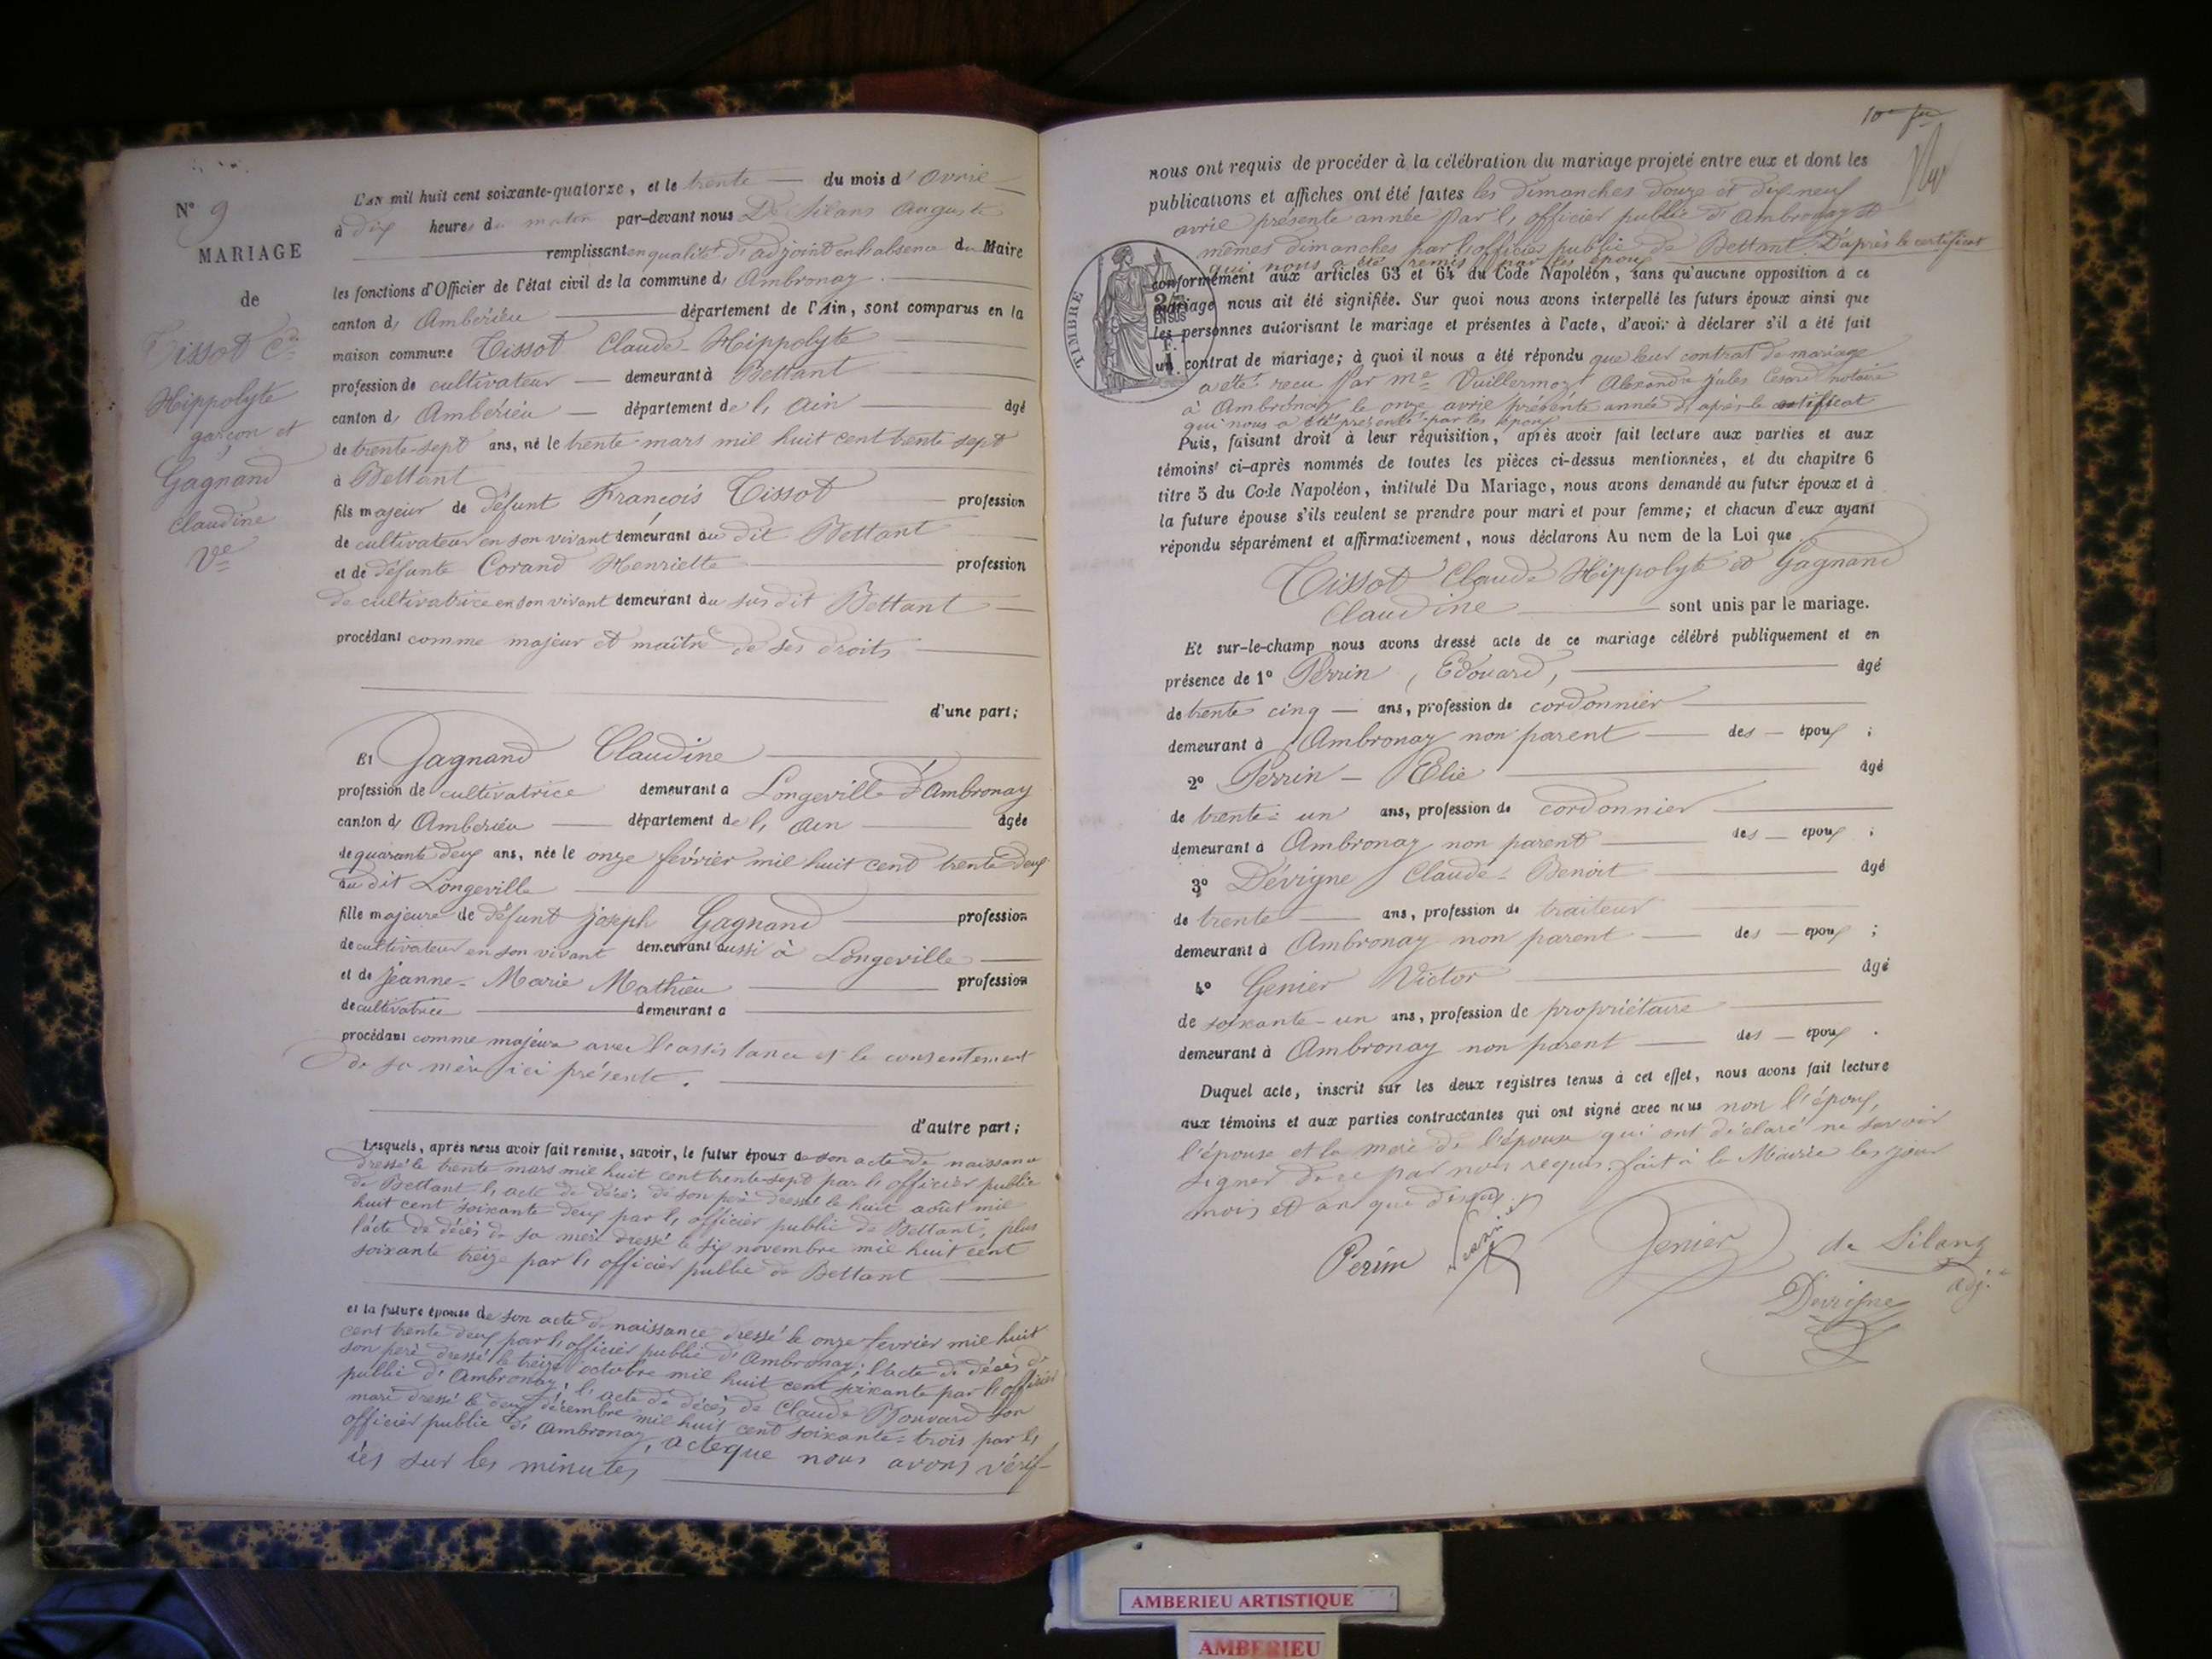 N° 9
MARIAGE
de
Tissot Cde
Hippolyte
garçon et
Gagnand
Claudine
Ve
L'AN mil huit cent soixante-quatorze, et le trente du mois d'avril
à dix heures du matin par-devant nous De Silans Auguste
remplissant en qualité d'adjoint en l'absence du Maire
les fonctions d'Officier de l'état civil de la commune d'Ambronay
canton d'Ambérieu département de l'Ain, sont comparus en la
maison commune Tissot Claude-Hippolyte
profession de cultivateur demeurant à Bettant
canton d'Ambérieu département de l'Ain âgé
de trente-sept ans, né le trente mars mil huit cent trente sept
à Bettant
fils majeur de défunt François Tissot profession
de cultivateur en son vivant demeurant au dit Bettant
et de défunte Corand Henriette profession
de cultivatrice en son vivant demeurant au sus dit Bettant
procédant comme majeur et maître de ses droits
d'une part;
Et Gagnand Claudine
profession de cultivatrice demeurant à Longeville d'Ambronay
canton d'Ambérieu département de l'Ain âgée
de quarante deux ans, née le onze février mil huit cent trente deux
au dit Longeville
fille majeure de défunt Joseph Gagnand profession
de cultivateur en son vivant demeurant aussi à Longeville
et de Jeanne-Marie Mathieu profession
de cultivatrice demeurant à
procédant comme majeure avec l'assistance et le consentement
de sa mère ici présente.
d'autre part;
Lesquels, après nous avoir fait remise, savoir, le futur époux de son acte de naissance
dressé le trente mars mil huit cent trente-sept par l'officier public
de Bettant l'acte de décès de son père dressé le huit août mil
huit cent soixante deux par l'officier public de Bettant, plus
l'acte de décès de sa mère dressé le six novembre mil huit cent
soixante treize par l'officier public de Bettant
et la future épouse de son acte de naissance dressé le onze février mil huit
cent trente deux par l'officier public d'Ambronay; l'acte de décès de
son père dressé le treize octobre mil huit cent soixante par l'officier
public d'Ambronay; l'acte de décès de Claude Bouvard son
mari dressé le deux décembre mil huit cent soixante-trois par l'
officier public d'Ambronay, acte que nous avons vérif-
iés sur les minutes
nous ont requis de procéder à la célébration du mariage projeté entre eux et dont les
publications et affiches ont été faites les dimanches douze et dix neuf
avril présente année par l'officier public d'Ambronay et
mêmes dimanches par l'officier public de Bettant. D'après le certificat
qui nous a été remis par les époux
conformément aux articles 63 et 64 du Code Napoléon, sans qu'aucune opposition à ce
mariage nous ait été signifiée. Sur quoi nous avons interpellé les futurs époux ainsi que
les personnes autorisant le mariage et présentes à l'acte, d'avoir à déclarer s'il a été fait
un contrat de mariage; à quoi il nous a été répondu que leur contrat de mariage
a été recu par me Vuillermoz Alexandre Jules Cesard notaire
à Ambronay le onze avril présente année d'après le certificat
qui nous a été présenté par les époux
Puis, faisant droit à leur réquisition, après avoir fait lecture aux parties et aux
témoins ci-après nommés de toutes les pièces ci-dessus mentionnées, et du chapitre 6
titre 5 du Code Napoléon, intitulé Du Mariage, nous avons demandé au futur époux et à
la future épouse s'ils veulent se prendre pour mari et pour femme; et chacun d'eux ayant
répondu séparément et affirmativement, nous déclarons Au nom de la Loi que
Tissot Claude Hippolyte et Gagnand
Claudine sont unis par le mariage.
Et sur-le-champ nous avons dressé acte de ce mariage célébré publiquement et en
présence de 1° Perrin, Edouard, âgé
de trente cinq ans, profession de cordonnier
demeurant à Ambronay non parent des époux;
2° Perrin - Elie âgé
de trente-un ans, profession de cordonnier
demeurant à Ambronay non parent des époux;
3° Dévigne Claude-Benoit âgé
de trente ans, profession de traiteur
demeurant à Ambronay non parent des époux;
4° Genier Victor âgé
de soixante-un ans, profession de propriétaire
demeurant à Ambronay non parent des époux.
Duquel acte, inscrit sur les deux registres tenus à cet effet, nous avons fait lecture
aux témoins et aux parties contractantes qui ont signé avec nous non l'époux,
l'épouse et la mère de l'épouse qui ont déclaré ne savoir
signer de ce par nous requis. fait à la Mairie les jour
mois et an que dessus.
Perrin Genier de Silans
Devigne adj.
TIMBRE
AMBERIEU ARTISTIQUE
AMBERIEU